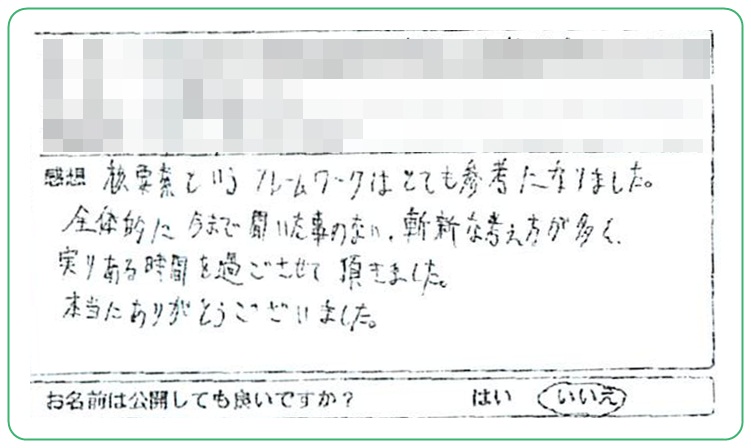 感想 核要素というフレームワークはとても参考になりました。
全体的に今まで聞いた事のない、斬新な考え方が多く、
実りある時間を過ごさせて頂きました。
本当にありがとうございました。
お名前は公開しても良いですか？ はい いいえ